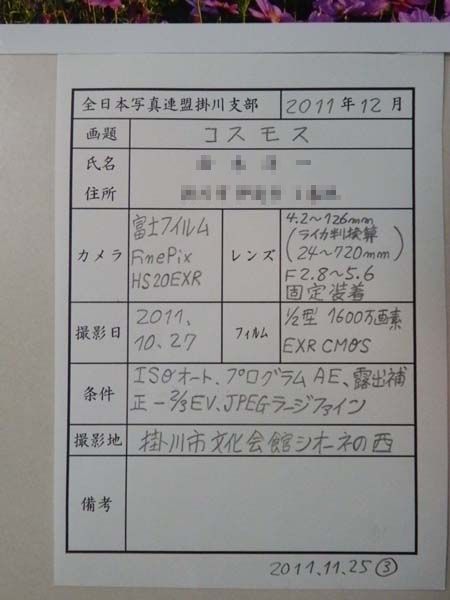 全日本写真連盟掛川支部 2011年12月
画題 コスモス
氏名
住所
カメラ 富士フイルム
FinePix
HS20EXR
レンズ 4.2〜126mm
(ライカ判換算
24〜720mm)
F2.8〜5.6
固定装着
撮影日 2011.
10.27
フィルム 1/2型 1600万画素
EXR CMOS
条件 ISOオート、プログラムAE、露出補
正-2/3EV、JPEGラージファイン
撮影地 掛川市文化会館シオーネの西
備考
2011.11.25 ③